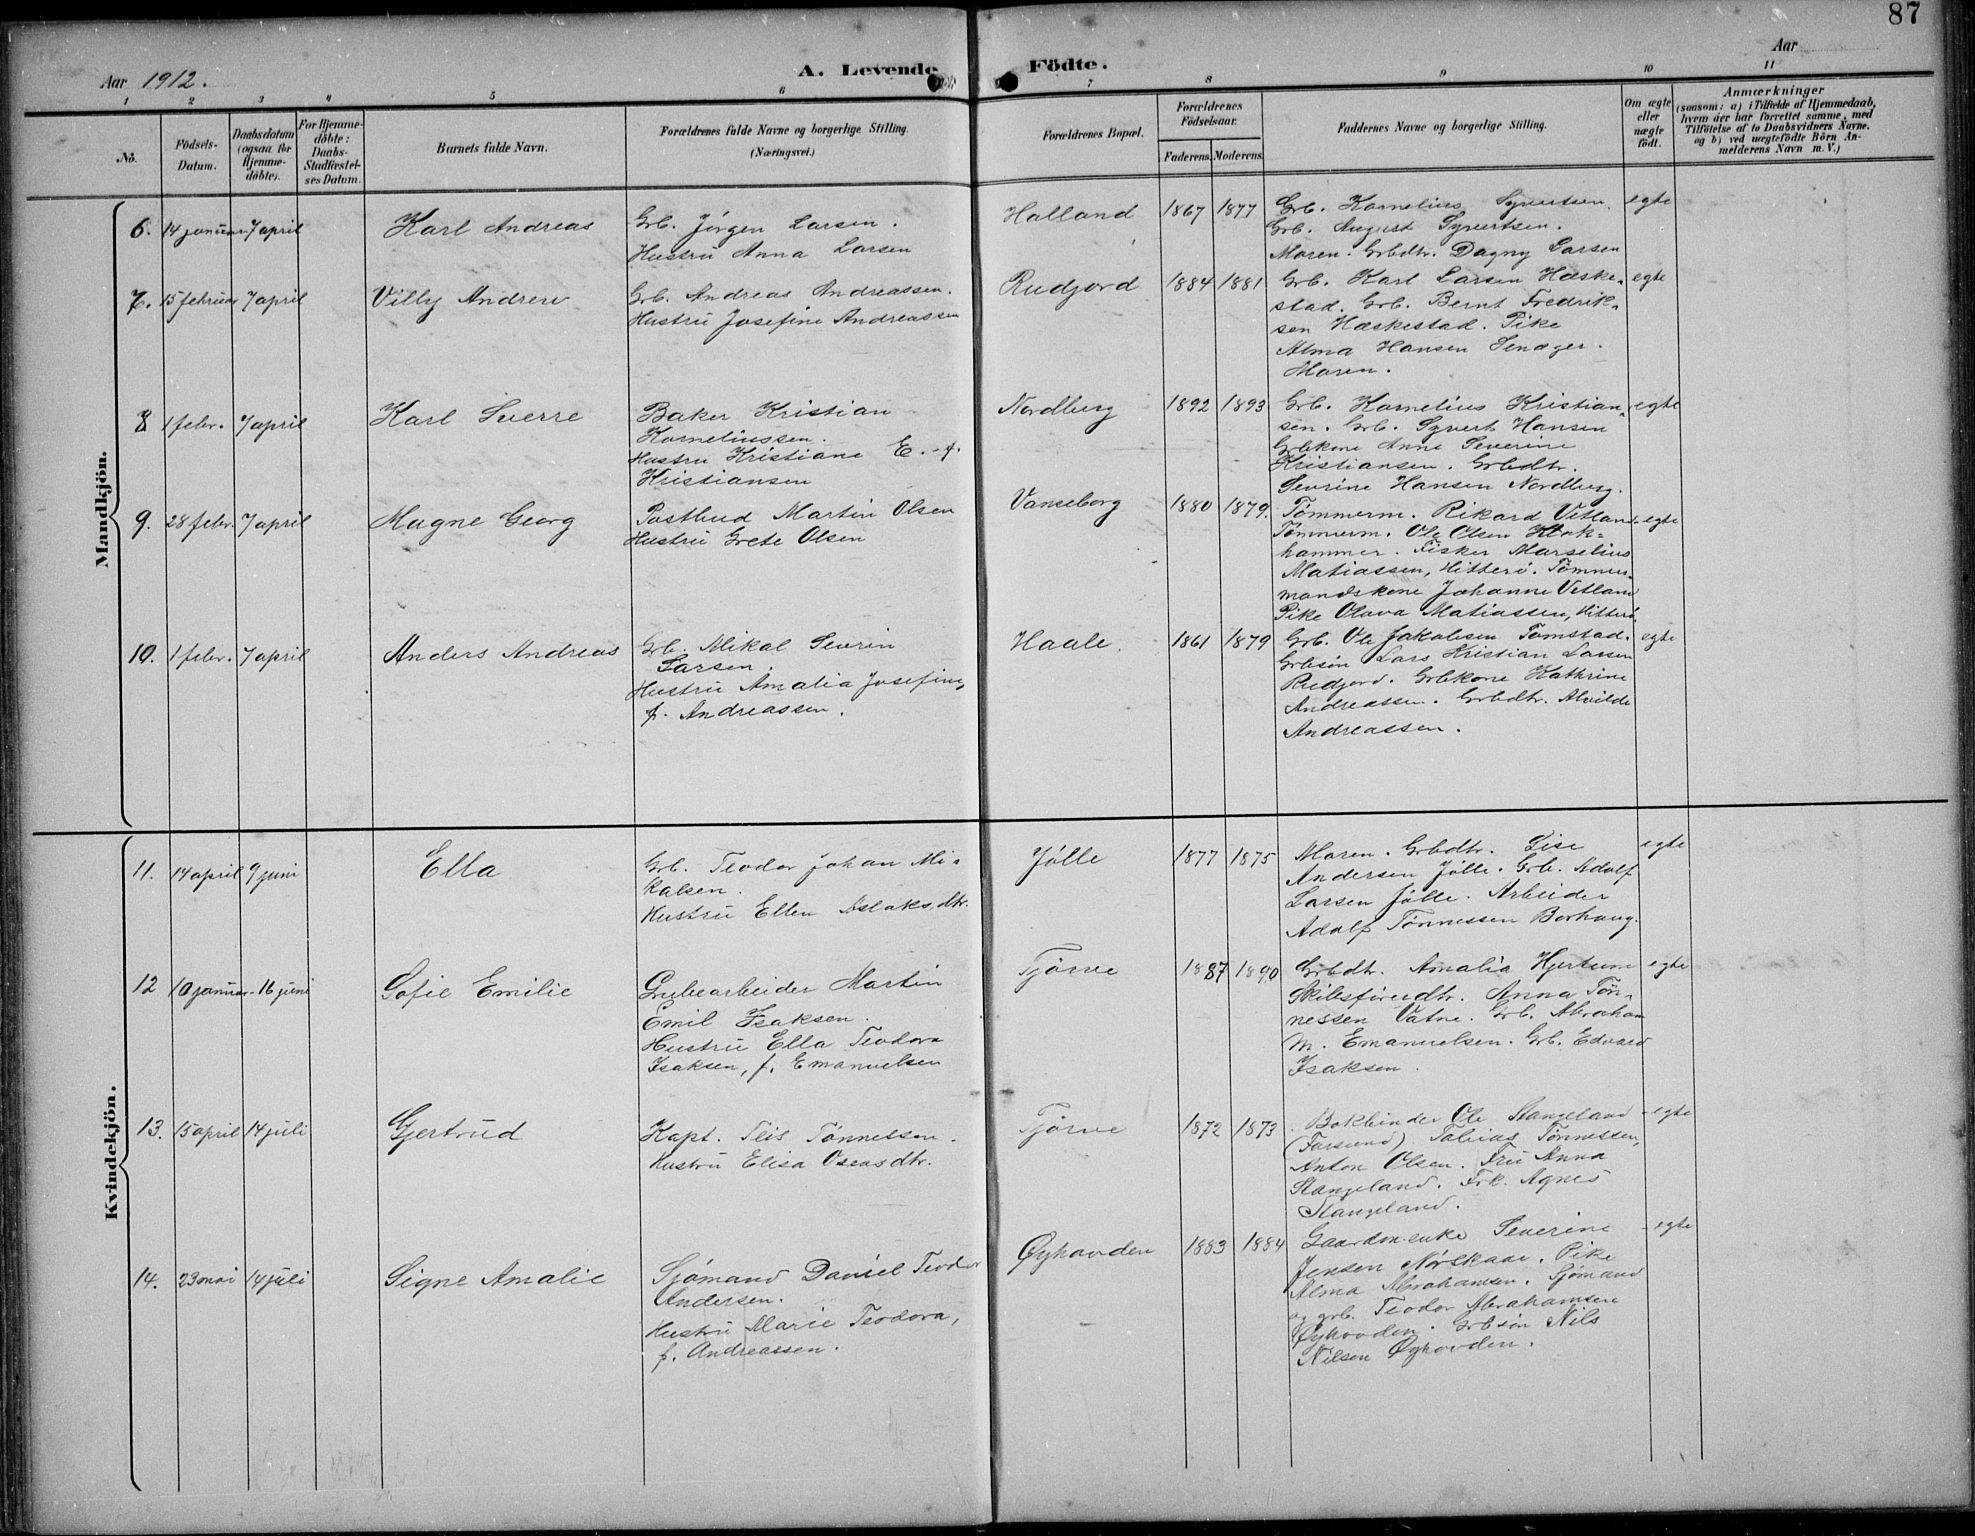 87
Aar 1912.
A. Levende Födte.
Aar
1 2 3 4 5 6 7 8 9 10 11
No.
Födsels-Datum.
Daabsdatum (ogsaa for Hjemmedöbte).
For Hjemmedöbte: Daabs-Stadfæstelses Datum.
Barnets fulde Navn.
Forældrenes fulde Navne og borgerlige Stilling.
(Næringsvei.)
Forældrenes Bopæl.
Forældrenes Födselsaar.
Faderens. Moderens.
Faddernes Navne og borgerlige Stilling.
Om ægte eller uægte födt.
Anmærkninger
(saasom: a) i Tilfælde af Hjemmedaab, hvem der har forrettet samme, med Tilföielse af to Daabsvidners Navne. og b) ved uægtefödte Börn Anmelderens Navn m. V.)
Mandkjön.
6. 14 januar 7 april Karl Andreas
Grb. Jörgen Larsen.
Hustru Anna Larsen
Halland 1867 1877
Grb. Kornelius Syvertsen.
Grb. August Syvertsen.
Moren. Grbdtr. Dagny Larsen
egte
7. 15 februar 7 april Villy Andrew
Grb. Andreas Andreassen.
Hustru Josefine Andreassen
Rudjord 1884 1881
Grb. Karl Larsen Hæske-
stad. Grb. Bernt Fredrik-
sen Hæskestad. Pike
Alma Hansen
Moren.
egte
8 1 febr. 7 april Karl Sverre
Baker Kristian
Korneliussen.
Hustru Kristiane E. f.
Kristiansen
Nordberg 1892 1893
Grb. Kornelius Kristian-
sen. Grb. Syvert Hansen
Grbkone Anne Severine
Kristiansen. Grbdtr.
Sevrine Hansen Nordberg.
egte
9. 28 febr. 7 april Magne Georg
Postbud Martin Olsen
Hustru Grete Olsen
Vanseborg 1880 1879.
Tömmerm. Rikard Vetland
Tömmerm. Ole Olsen Klok-
hammer. Fisker Marselius
Matiassen, Hitterö. Tömmer-
mandskone Johanne Vetland
Pike Olava Matiassen, Hitterö
egte
10. 1 febr. 7 april Anders Andreas
Grb. Mikal Severin
Larsen.
Hustru Amalia Josefine,
f. Andreassen.
Haale. 1861 1879
Grb. Ole Jakobsen Tomstad.
Grbsön Lars Kristian Larsen
Rudjord. Grbkone Kathrine
Andreassen. Grbdtr. Alvilde
Andreassen.
egte
Kvindekjön.
11. 14 april 9 juni Ella
Grb. Teodor Johan Mi-
kalsen.
Hustru Ellen Aslaksdtr.
Jölle 1877 1875
Moren. Grbdtr. Lise
Andersen Jölle. Grb. Adolf
Larsen Jölle. Arbeider
Adolf Tönnessen Borhaug.
egte
12 10 januar 16 juni Sofie Emilie
Grubearbeider Martin
Emil Isaksen.
Hustru Ella Teodora
Isaksen, f. Emanuelsen
Tjörve 1887 1890
Grbdtr. Amalia Hjertum
Skibsförerdtr. Anna Tön-
nessen Vatne. Grb. Abraham
M. Emanuelsen. Grb. Edvard
Isaksen.
egte
13. 15 april 14 juli Gjertrud
Kapt. Teis Tönnessen.
Hustru Elisa Oseasdtr.
Tjörve 1872 1873
Bokbinder Ole Stangeland
(Farsund). Tobias Tönnessen,
Anton Olsen. Fru Anna
Stangeland. Frk. Agnes
Stangeland.
egte
14. 23 mai 14 juli Signe Amalie
Sjömand Daniel Teodor
Andersen.
Hustru Marie Teodora,
f. Andreassen.
Øyhovden 1883 1884
Gaardm.enke Severine
Jensen Nörskaar. Pike
Alma Abrahamsen. Sjömand
og grb. Teodor Abrahamsen
Øyhovden. Grbsön Nils
Nilsen Øyhovden.
egte